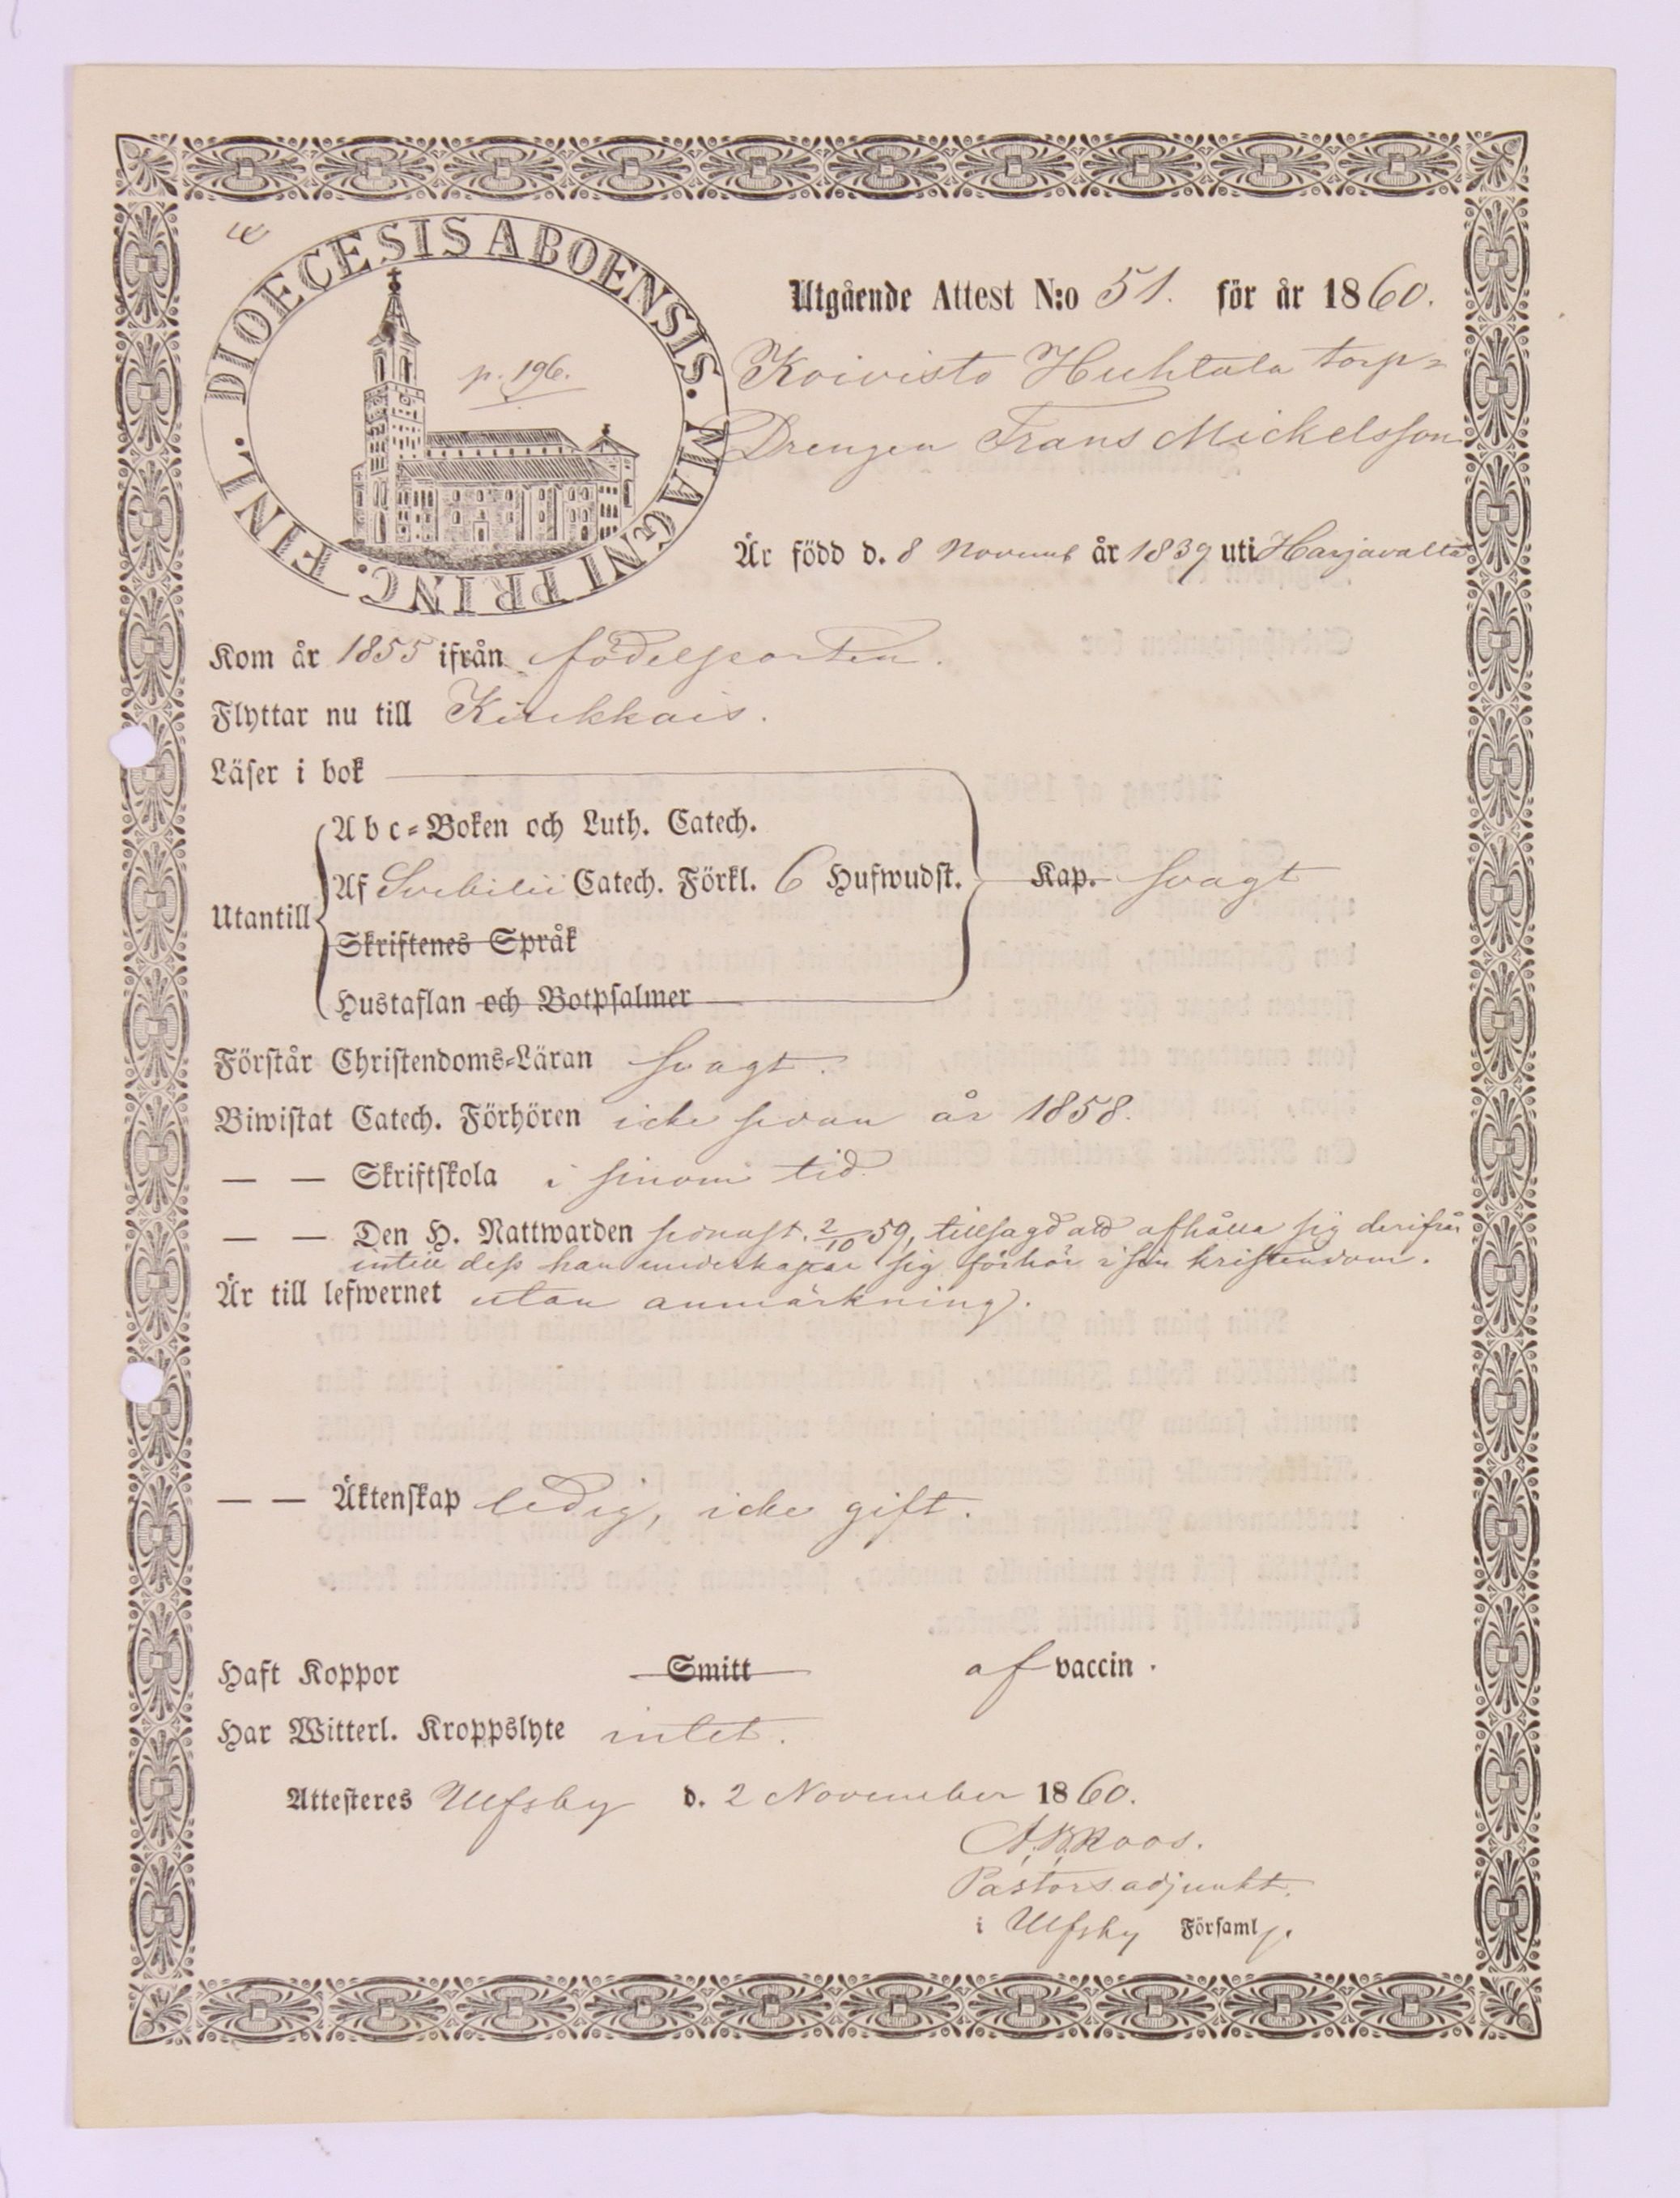 DIOECESIS ABOENSIS. MAGNI PRINC. FINL.
p. 196.
Utgående Attest N:o 51. för år 1860.
Koivisto Huhtala torp=
Drengen Frans Mickelsson
Är född d. 8 Novemb år 1839 uti Harjavalta
Kom år 1855 ifrån födelseorten.
Flyttar nu till Kiukkais.
Läser i bok
Abc=Boken och Luth. Catech.
Utantill Af Svebilii Catech. Förkl. 6 Hufwudst. Kap. svagt
Skriftenes Språk
Hustaflan och Botpsalmer
Förstår Christendoms=Läran svagt.
Biwistat Catech. Förhören icke sedan år 1858.
— — Skriftskola i sinom tid.
— — Den H. Nattwarden senast. 2/10 59, tillsagd att afhålla sig derifrån
intill dess han underkastar sig förhör i sin kristendom.
Är till lefwernet utan anmärkning.
— — Äktenskap ledig, icke gift.
Haft Koppor Smitt af vaccin.
Har Witterl. Kroppslyte intet.
Attesteres Ulfsby d. 2 November 1860.
Roos.
Pastors adjunkt.
i Ulfsby Församlg.